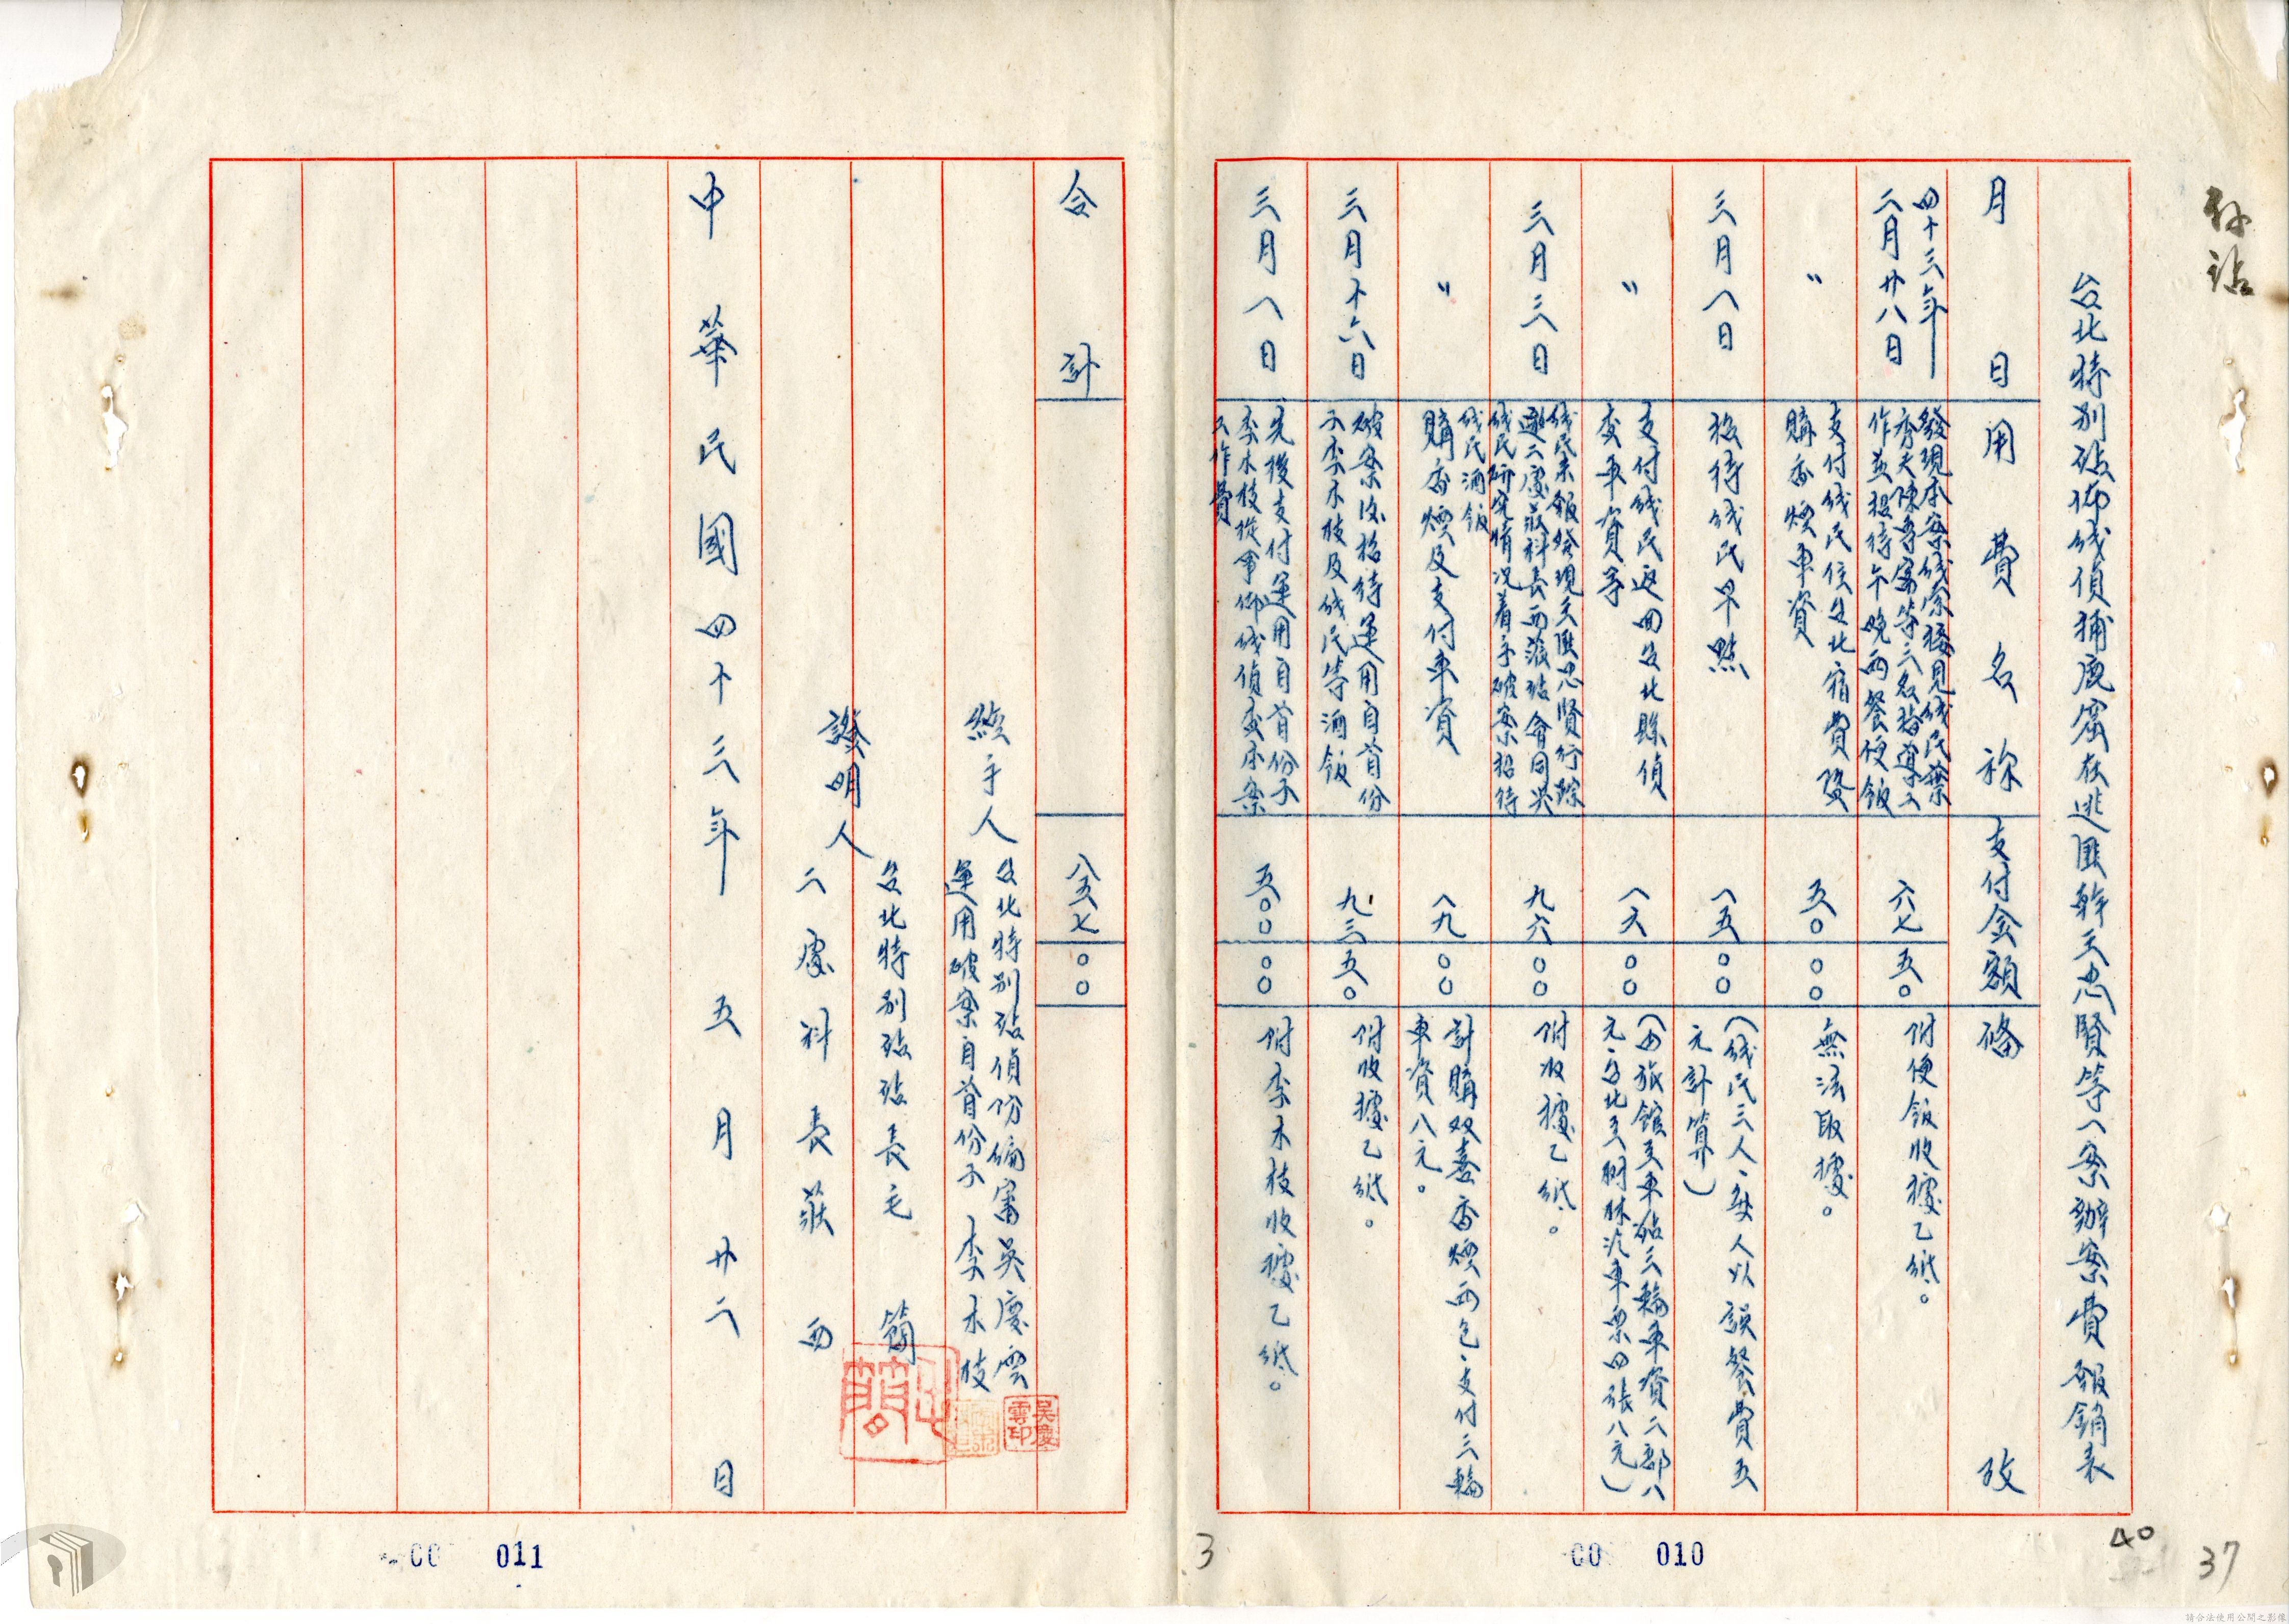 孙站
台北特別站佈线偵捕鹿窟在逃匪幹王忠賢等一案辦案費報銷表
月日 用費名称 支付金額 備攷
四十三年
二月廿八日
發現本案线索接見线民葉
秀夫陳專富等三名指導工
作並招待午晚兩餐便飯
六七 五〇
附便飯收據乙紙。
〃
支付线民住台北宿費暨
購香煙車資
五〇 〇〇
無法取據。
三月一日
招待线民早點
一五 〇〇
(线民三人、每人以誤餐費五
元計算)
〃
支付线民返回台北縣偵
查車資等
一六 〇〇
(由旅館至車站三輪車資二部八
元、台北至樹林汽車票四張八元)
三月三日
线民來報發現王匪忠賢行踪
邀二處莊科長西薇站會同吳
线民研究情况着手破案招待
线民酒飯
九六 〇〇
附收據乙紙。
〃
購香煙及支付車資
一九 〇〇
計購双喜香煙兩包、支付三輪
車資八元。
三月十六日
破案後招待運用自首份
子李木枝及线民等酒飯
九三 五〇
附收據乙紙。
三月一日
先後支付運用自首份子
李木枝從事佈线偵查本案
工作費
五〇〇 〇〇
附李木枝收據乙紙。
合計
八五七 〇〇
經手人
台北特別站偵份偏富吳慶雲
運用破案自首份子 李木枝
證明人
台北特別站站長毛 簡
二處科長莊 西
中華民國四十三年 五月廿二日
吳慶雲印
00 011
3
00 010
40
37
請合法使用公開之影像